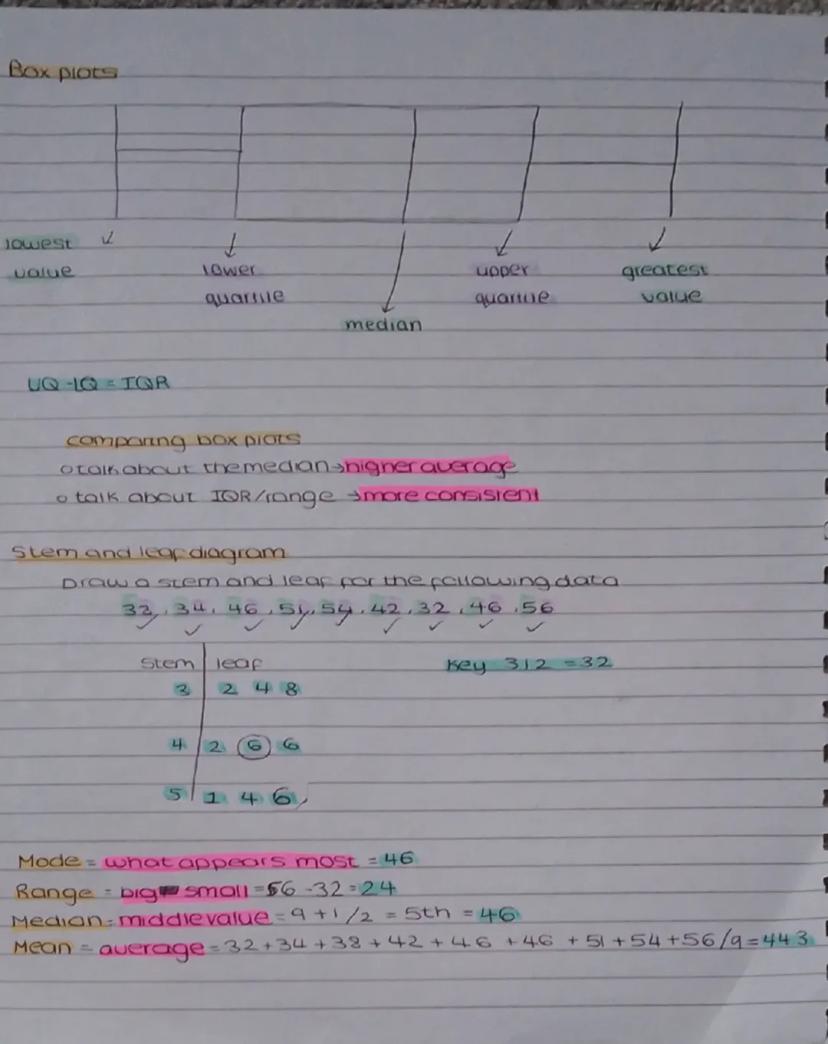 Box plots
lowest
value
lower
quartile
median
upper
quartile
greatest
value
UQ-LQ = IQR
comparing box plots
o talk about the median → higher average
o talk about IQR/range → more consistent
Stem and leaf diagram
Draw a stem and leaf for the following data
32, 34, 46, 51, 54, 42, 32, 46, 56
Stem | leaf
Key 3|2 = 32
3 | 2 4 8
4 | 2 6 6
5 | 1 4 6,
Mode = what appears most = 46
Range = big - small = 56 - 32 = 24
Median = middle value = 9 + 1 / 2 = 5th = 46
Mean = average = 32 + 34 + 38 + 42 + 46 + 46 + 51 + 54 + 56 / 9 = 443